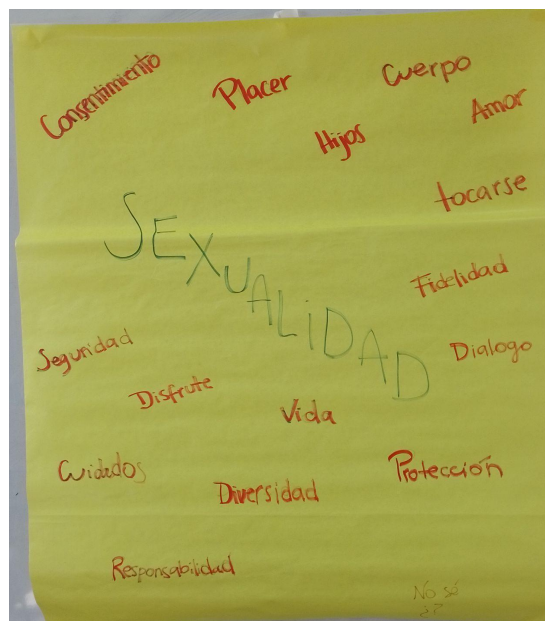 Consentimiento
Placer
Cuerpo
Amor
Hijos
tocarse
SEXUALIDAD
Fidelidad
Seguridad
Dialogo
Disfrute
Vida
Cuidados
Diversidad
Protección
Responsabilidad
No sé
¿?